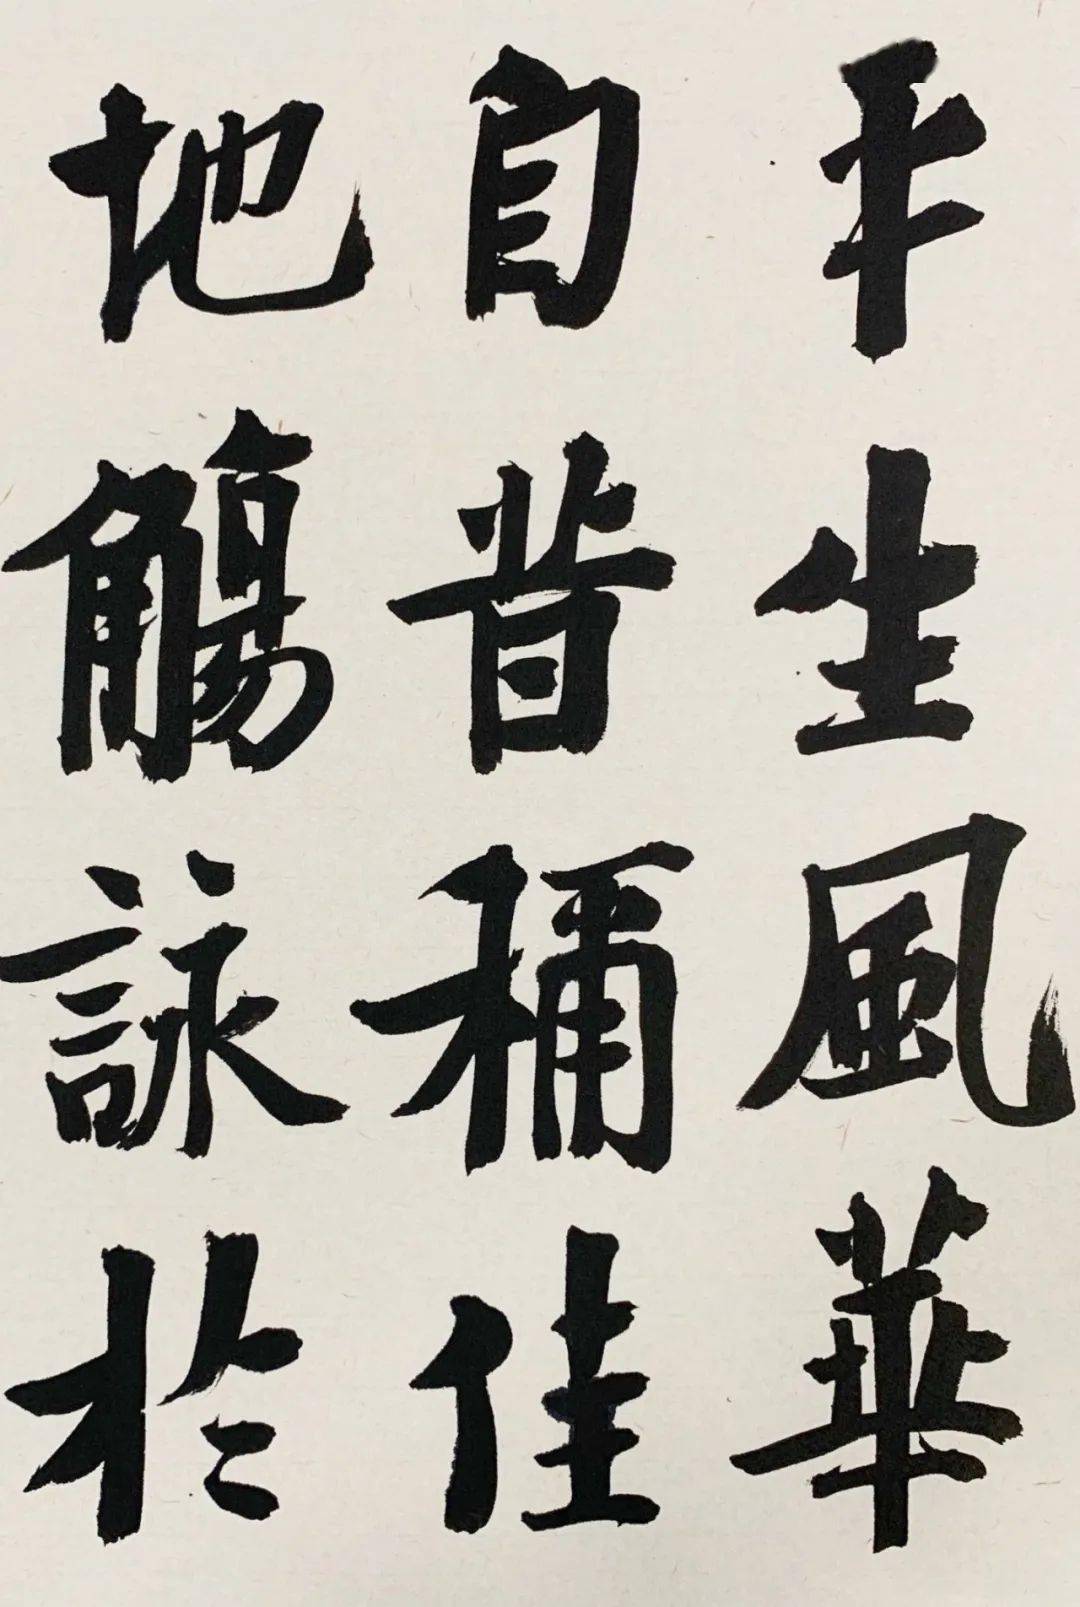 平生風華
自昔稱佳
地觴詠於